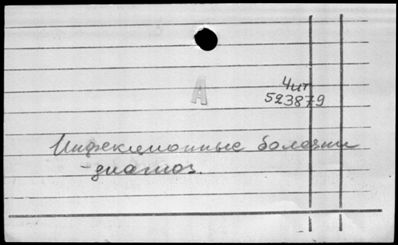 А
Чит
523879
Инфекционные болезни
- диагноз.